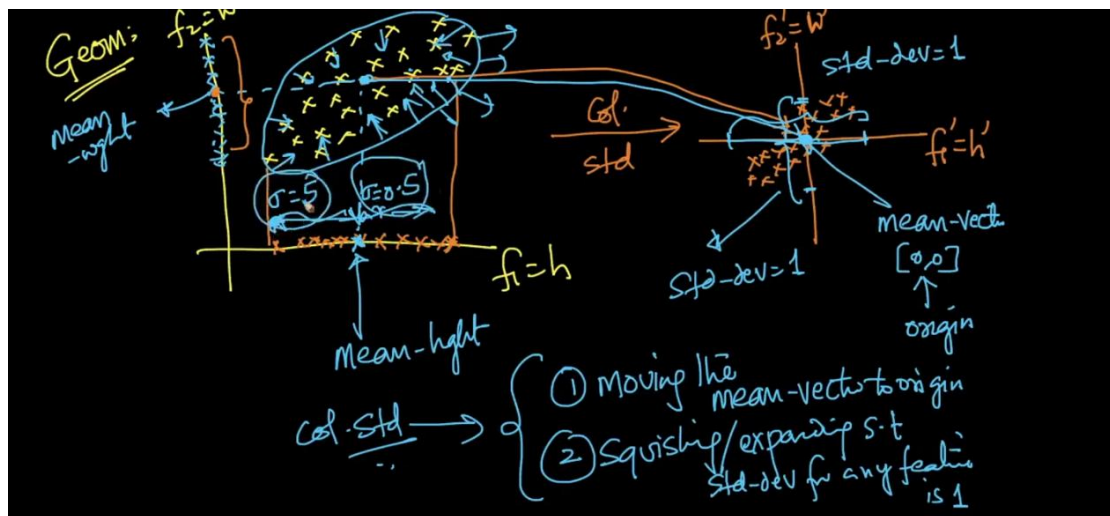 Geom:
f₂=W
mean
-wght
σ=5
σ=0.5
f₁=h
mean-hght
Col.
std
f₂'=W'
std-dev=1
f₁'=h'
std-dev=1
mean-vect
[0,0]
origin
Col.Std
① Moving the
mean-vector to origin
② Squishing/expanding s.t
std-dev for any feature
is 1